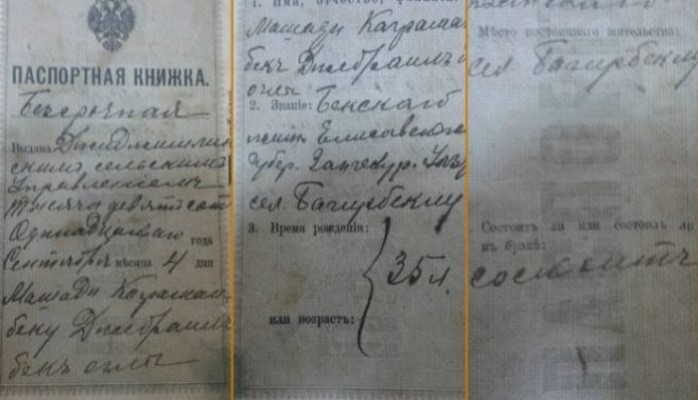 ПАСПОРТНАЯ КНИЖКА.
Безсрочная
Выдана Джиджимли
скимъ сельскимъ
Управленіемъ
тысяча девятьсот
Одинадцатаго года
Сентября мѣсяца 4 дня
Машади Каграман
беку Джебраилъ
бекъ оглы
1. Имя, отчество, фамилія:
Мешади Каграман
бекъ Джебраилъ
оглы
2. Званіе: Бекскаго
Елисаветпо
губер. Зангезур. Уѣз
сел. Багирбеклу
3. Время рожденія:
или возрастъ:
35 л.
Мѣсто постояннаго жительства:
сел Багирбеклу
Состоитъ ли или состоялъ ли
въ бракѣ:
состоитъ